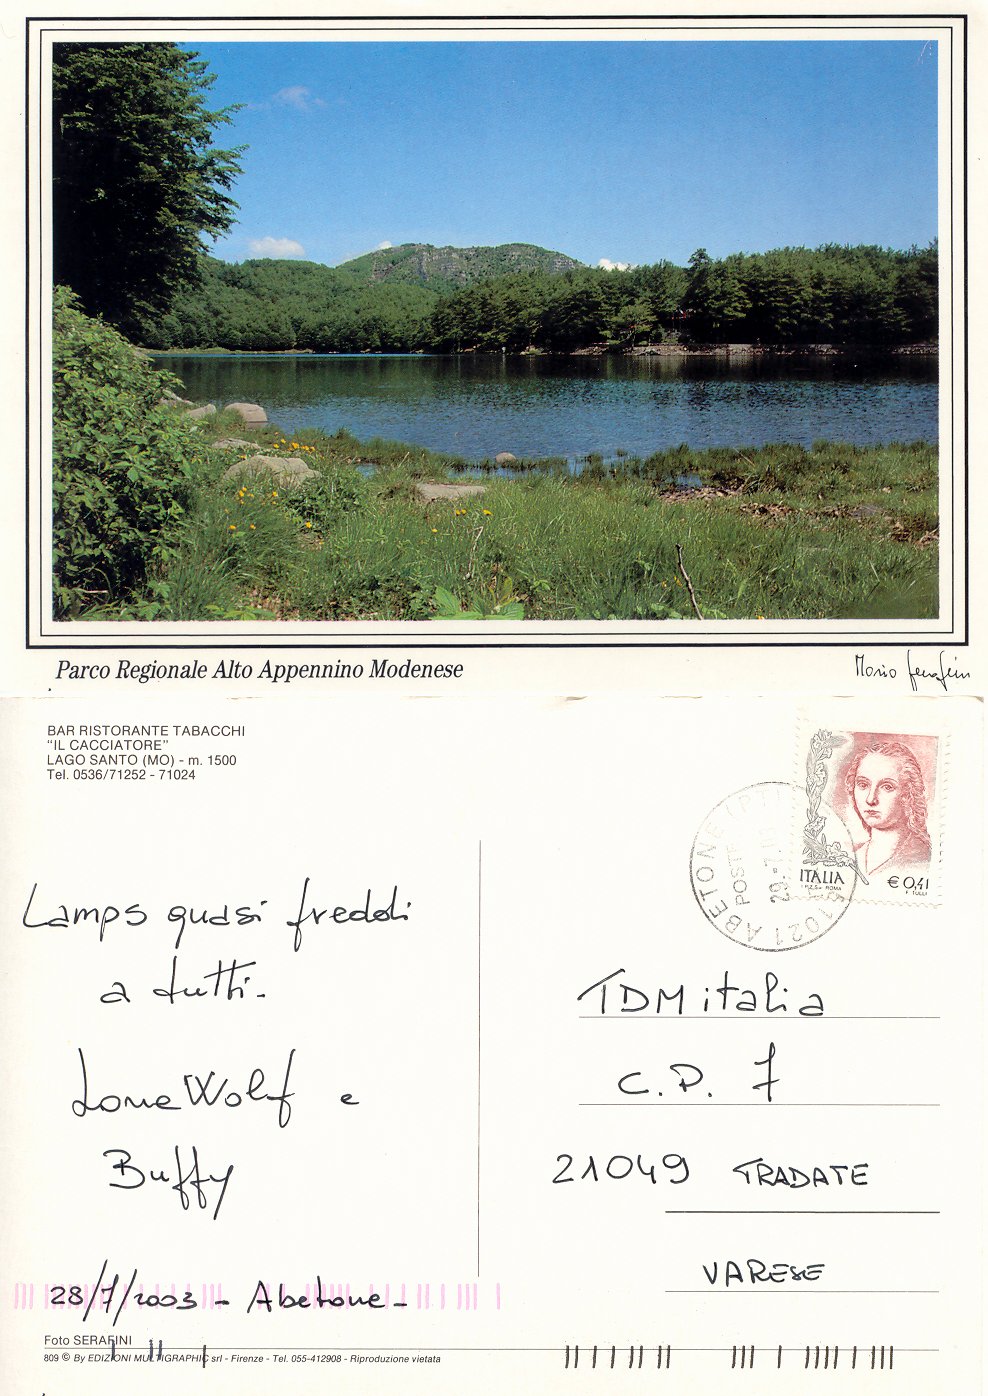 Parco Regionale Alto Appennino Modenese
BAR RISTORANTE TABACCHI
"IL CACCIATORE"
LAGO SANTO (MO) - m. 1500
Tel. 0536/71252 - 71024
ABETONE (PT)
POSTE
29.-7.
51021 ABETONE
ITALIA
I.P.Z.S. - ROMA
€ 0,41
T. TULLI
Lamps quasi freddi
a tutti.
LoneWolf e
Buffy
28/7/2003 - Abetone -
TDM italia
C.P. 7
21049 TRADATE
VARESE
Foto SERAFINI
809 © By EDIZIONI MULTIGRAPHIC srl - Firenze - Tel. 055-412908 - Riproduzione vietata